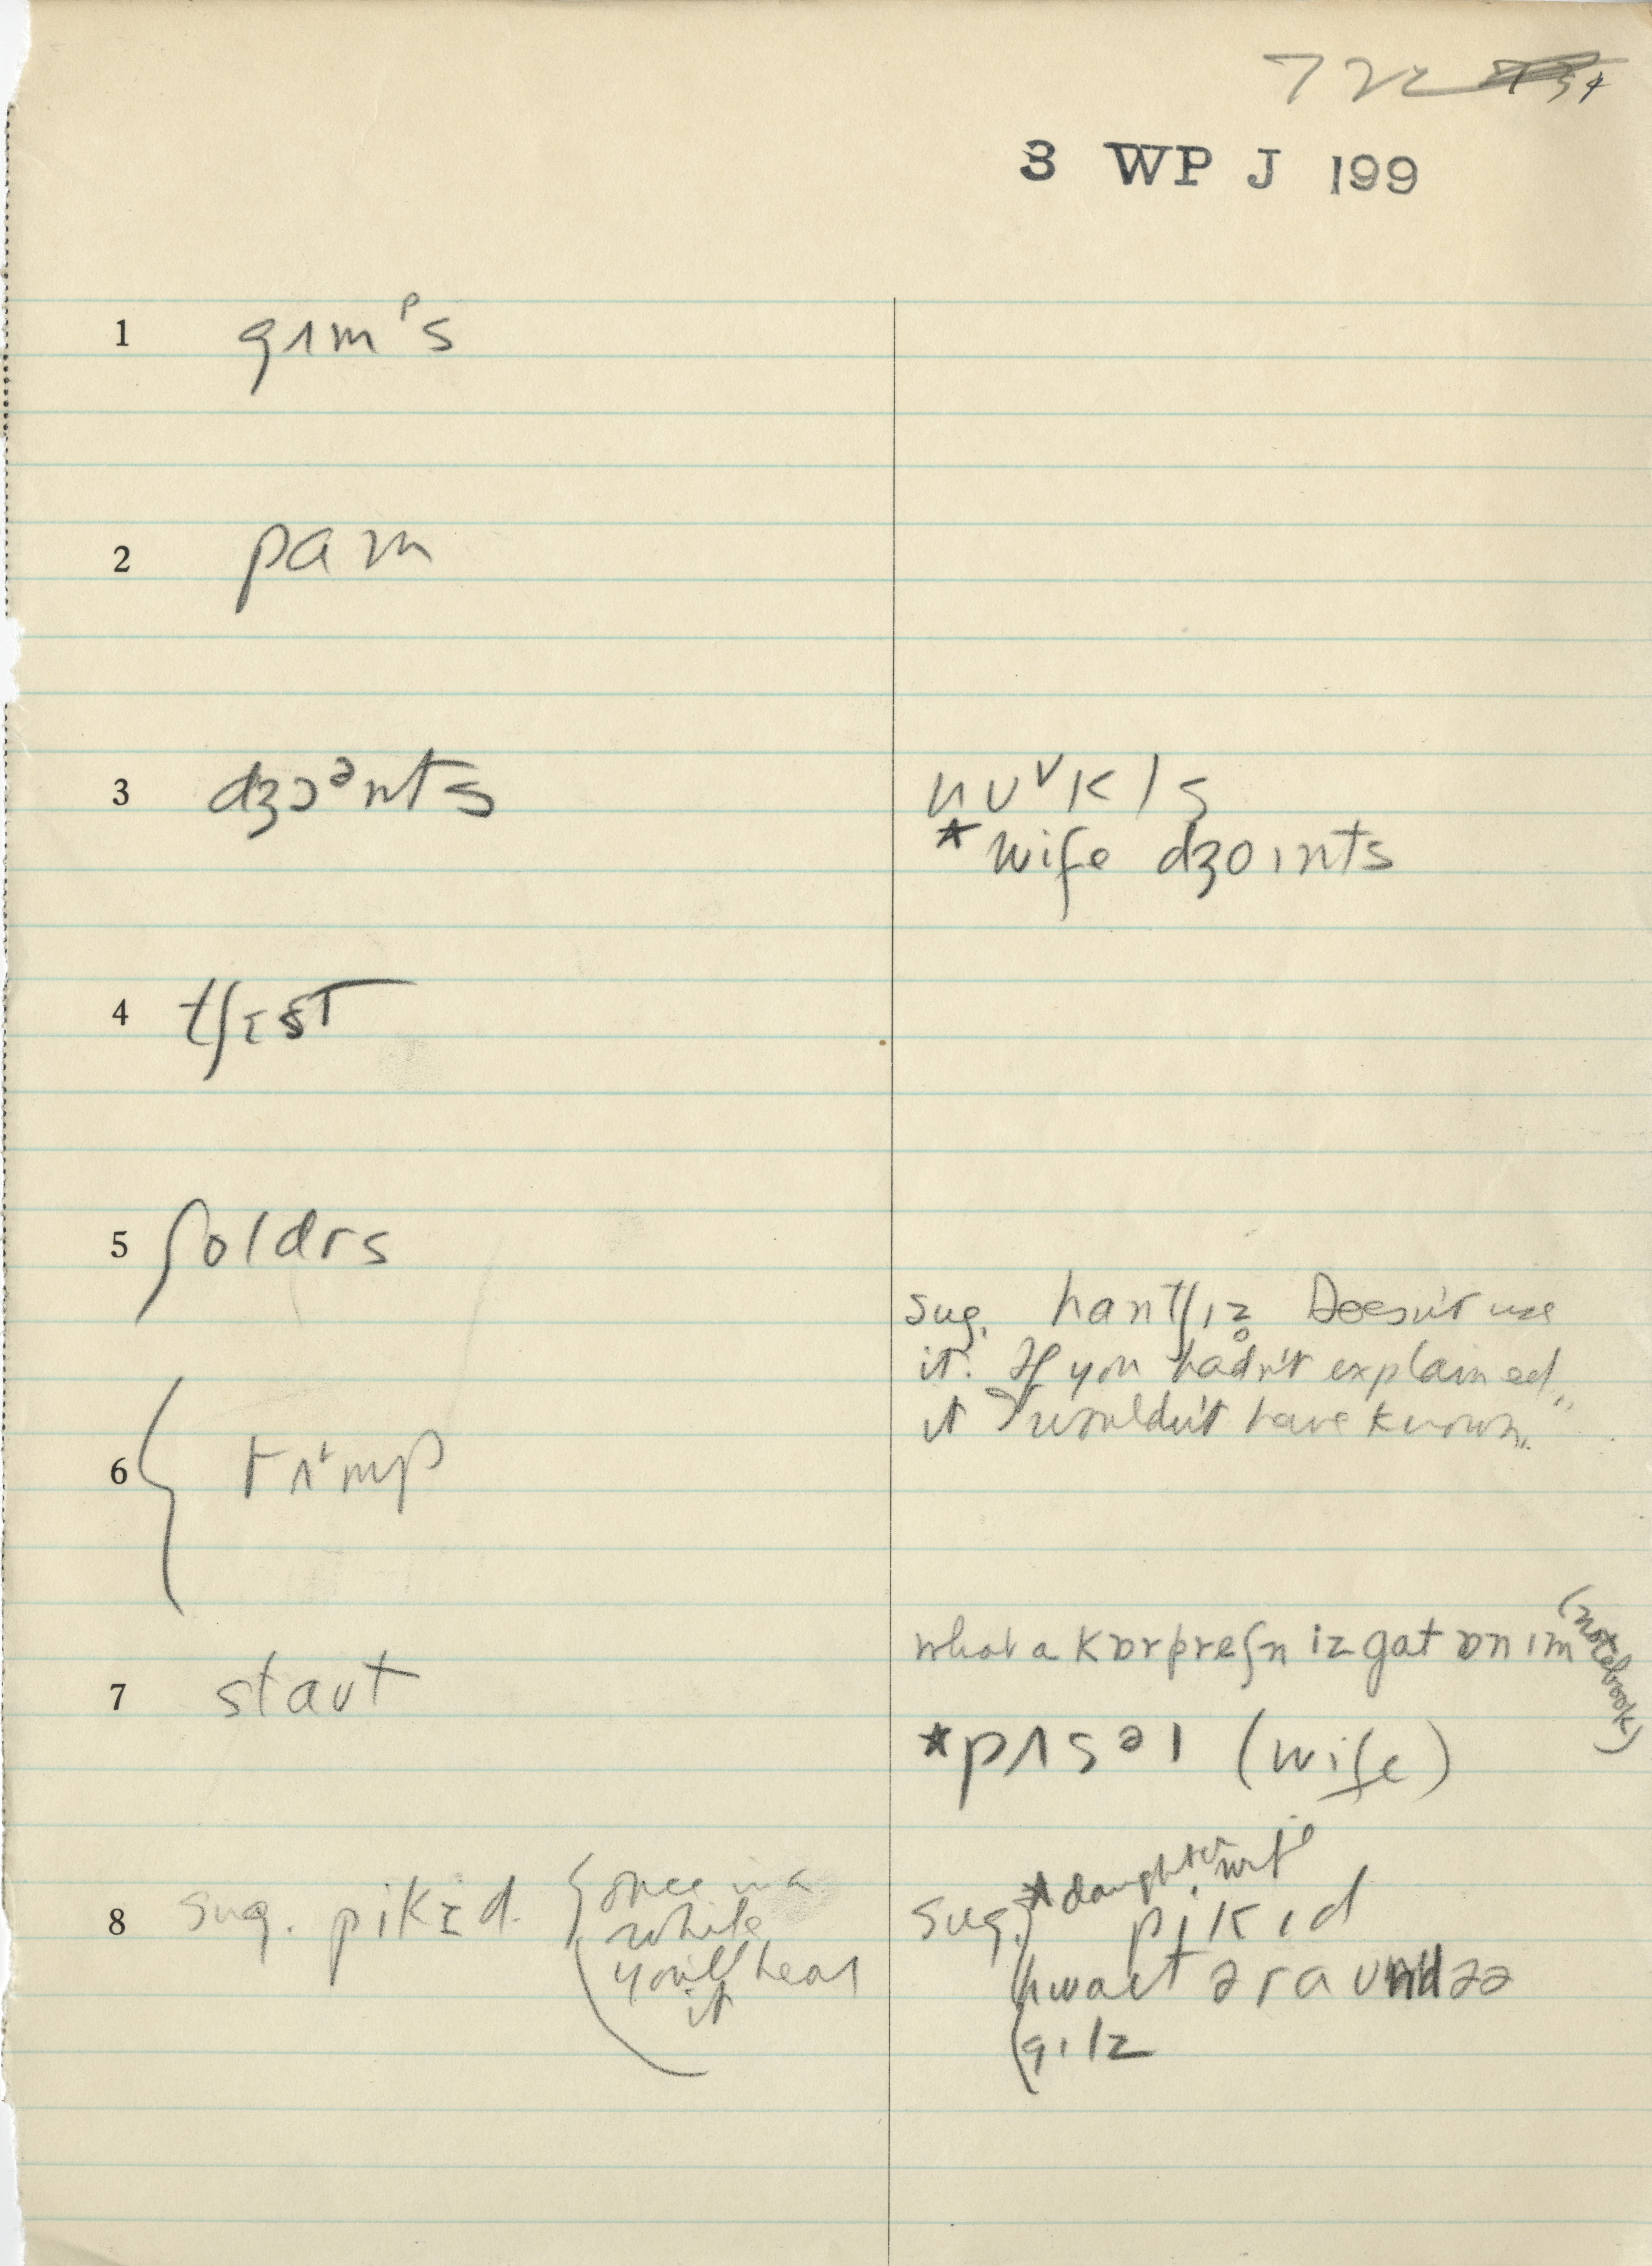 72
3 WP J 199
1 gʌmᵖs
2 pam
3 dʒɔᵊnts
nʋᵛkls
* wife dʒoɪnts
4 tʃɛst
5 ʃoldrs
sug. hantʃɪz̥ Doesn't use
it. If you hadn't explained
it I wouldn't have known."
6 rʌmp
what a kɒrpreʃn iz gat ɒn ɪm (notebook)
7 staut
*pʌsəl (wife)
8 sug. pikɪd. {once in a
while
you'll hear
it
sug. *daughter, wife
pikɪd
hwaet əraʋnd əə
gɪlz